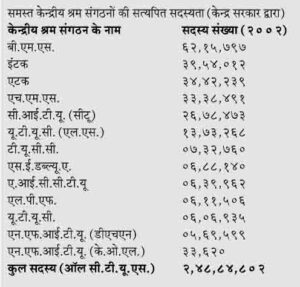 समस्त केन्द्रीय श्रम संगठनों की सत्यापित सदस्यता (केन्द्र सरकार द्वारा)
केन्द्रीय श्रम संगठन के नाम सदस्य संख्या (२००२)
बी.एम.एस. ६२,१५,७९७
इंटक ३९,५४,०१२
एटक ३४,४२,२३९
एच.एम.एस. ३३,३८,४९१
सी.आई.टी.यू. (सीटू) २६,७८,४७३
यू.टी.यू.सी. (एल.एस.) १३,७३,२६८
टी.यू.सी.सी. ०७,३२,७६०
एस.ई.डब्ल्यू.ए. ०६,८८,१४०
ए.आई.सी.सी.टी.यू ०६,३९,९६२
एल.पी.एफ. ०६,११,५०६
यू.टी.यू.सी. ०६,०६,९३५
एन.एफ.आई.टी.यू. (डीएचएन) ०५,६९,५९९
एन.एफ.आई.टी.यू. (के.ओ.एल.) ३३,६२०
कुल सदस्य (ऑल सी.टी.यू.एस.) २,४८,८४,८०२